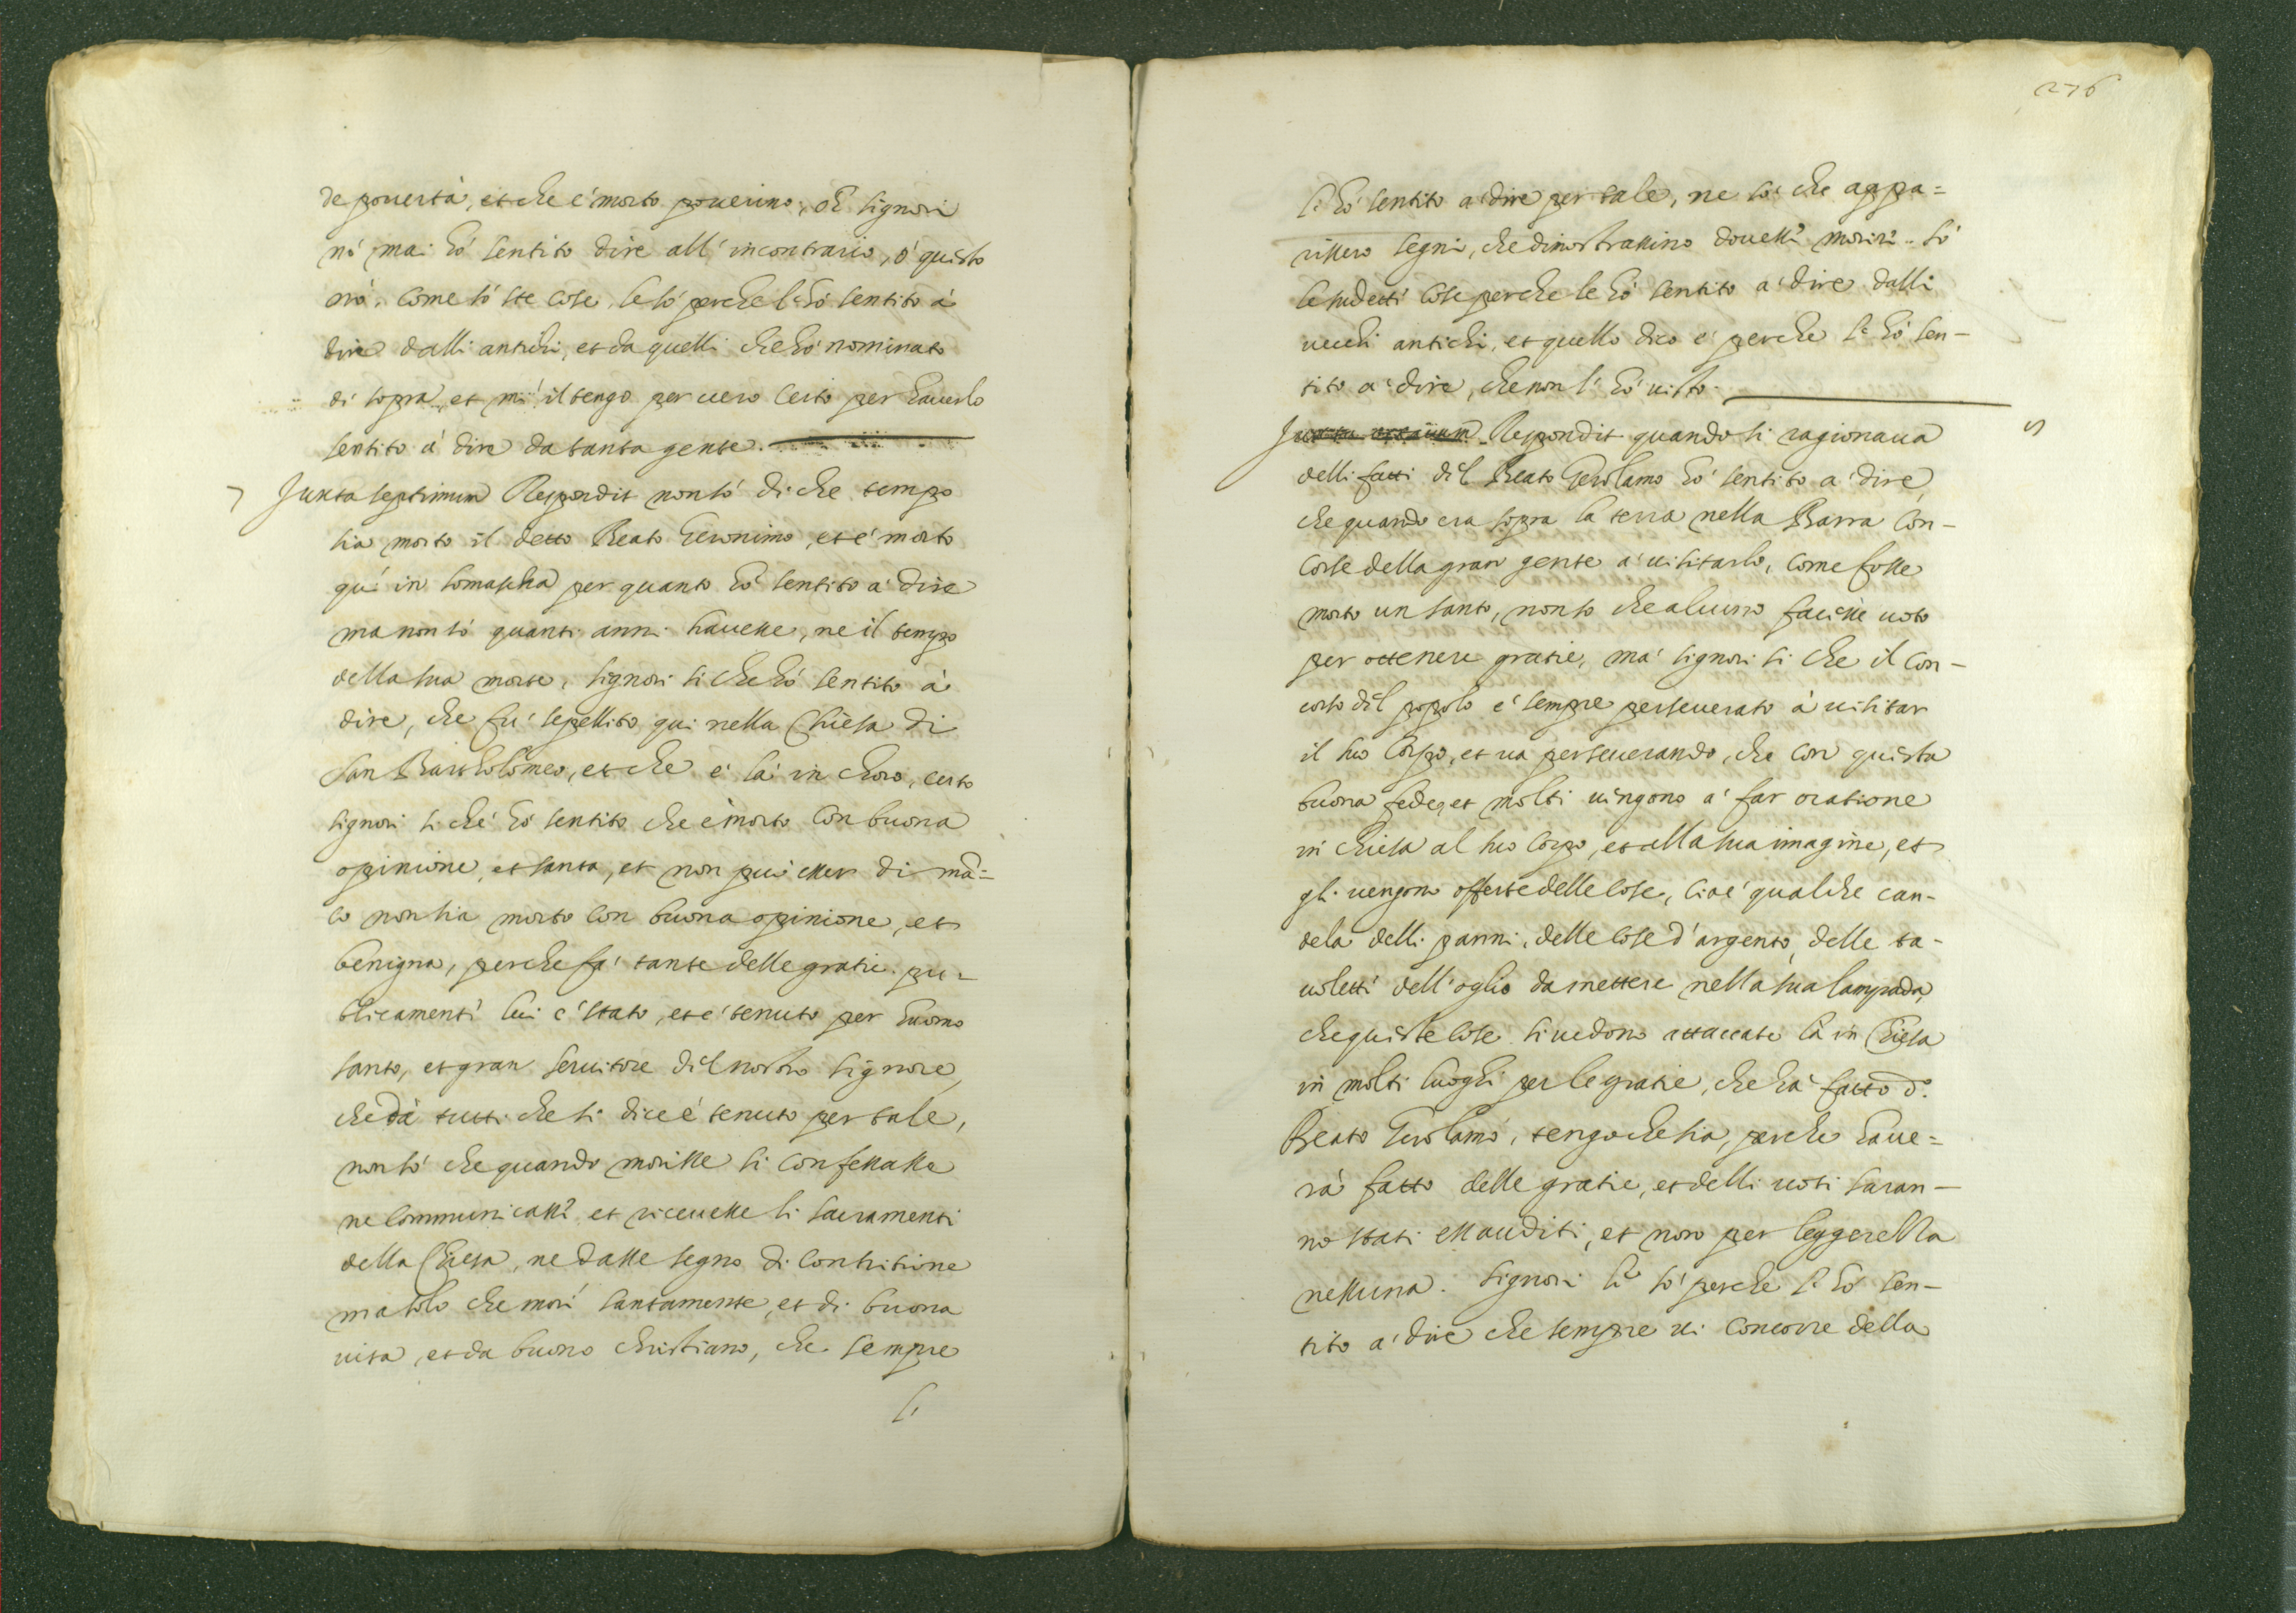 de pouertà, et che è morto pouerino, oh signori
nò mai hò sentito dire all'incontrario, ò questo
nò. come sò ste cose, le sò perche l'hò sentito à
dire dalli antichi, et da quelli che hò nominato
di sopra, et mi il tengo per uero certo per hauerlo
sentito à dire da tanta gente.
7 Juxta septimum Respondit non sò di che tempo
sia morto il detto Beato Geronimo, et è morto
quì in Somascha per quanto hò sentito à dire
ma non sò quanti anni hauesse, ne il tempo
della sua morte, signori si che hò sentito à
dire, che fù sepellito qui nella Chiesa di
San Bartholomeo, et che è là in choro, certo
signori si che hò sentito che è morto con buona
opinione, et santa, et non può esser di mã=
co non sia morto con buona opinione, et
benigna, perche fà tante delle gratie. pu=
blicamenti lui è stato, et è tenuto per huomo
santo, et gran seruitore dil nostro signore,
che dà tutti che si dice è tenuto per tale,
non sò che quando morisse si confessasse
ne communicassi et riceuesse li sacramenti
della Chiesa, ne dasse segno di contritione
ma solo che morì santamente, et di buona
uita, et da buono christiano, che sempre
l'
276
l'hò sentito a dire per tale, ne sò che appa=
rissero segni, che dimostrassino douessi morire. sò
le sudetti cose perche le hò sentito a dire dalli
uechi antichi, et quello dico è perche l'hò sen-
tito a dire, che non l'hò uisto.
Juxta Respondit quando si ragionaua
delli fatti dil Beato Gerolamo hò sentito a dire,
che quando era sopra la terra nella Barra con-
corse della gran gente a uisitarlo, come fosse
morto un santo, non so che alcuno facisse uoto
per ottenere gratie, ma signori si che il con-
corso dil popolo è sempre perseuerato à uisitar
il suo corpo, et ua perseuerando, che con questa
buona fede, et molti uingono a far oratione
in chiesa al suo corpo, et alla sua imagine, et
gli uengono offerte delle cose, cioè qualche can-
dela delli panni, delle cose d'argento, delle ta-
uoletti dell'oglio da mettere nella sua lampada,
che queste cose si uedono attaccate là in Chiesa
in molti luoghi per le gratie, che hà fatto d.º
Beato Gerolamo, tengo che sia, perche haue=
rà fatto delle gratie, et delli uoti saran-
no stati essauditi, et non per leggerezza
nessuna. Signori si sò perche l'hò sen-
tito a dire che sempre ui concorre della